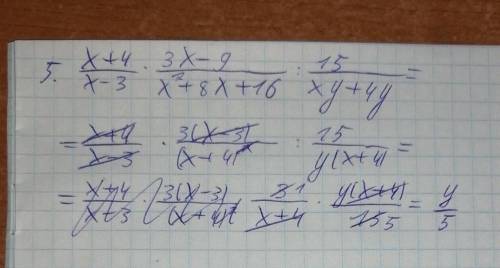 5. (x+4)/(x-3) · (3x-9)/(x²+8x+16) : 15/(xy+4y) =
= (x+4)/(x-3) · 3(x-3)/(x+4)² : 15/(y(x+4) =
= (x+4)/(x-3) · 3(x-3)/(x+4)² · 31/(x+4) · y(x+4)/155 = y/5